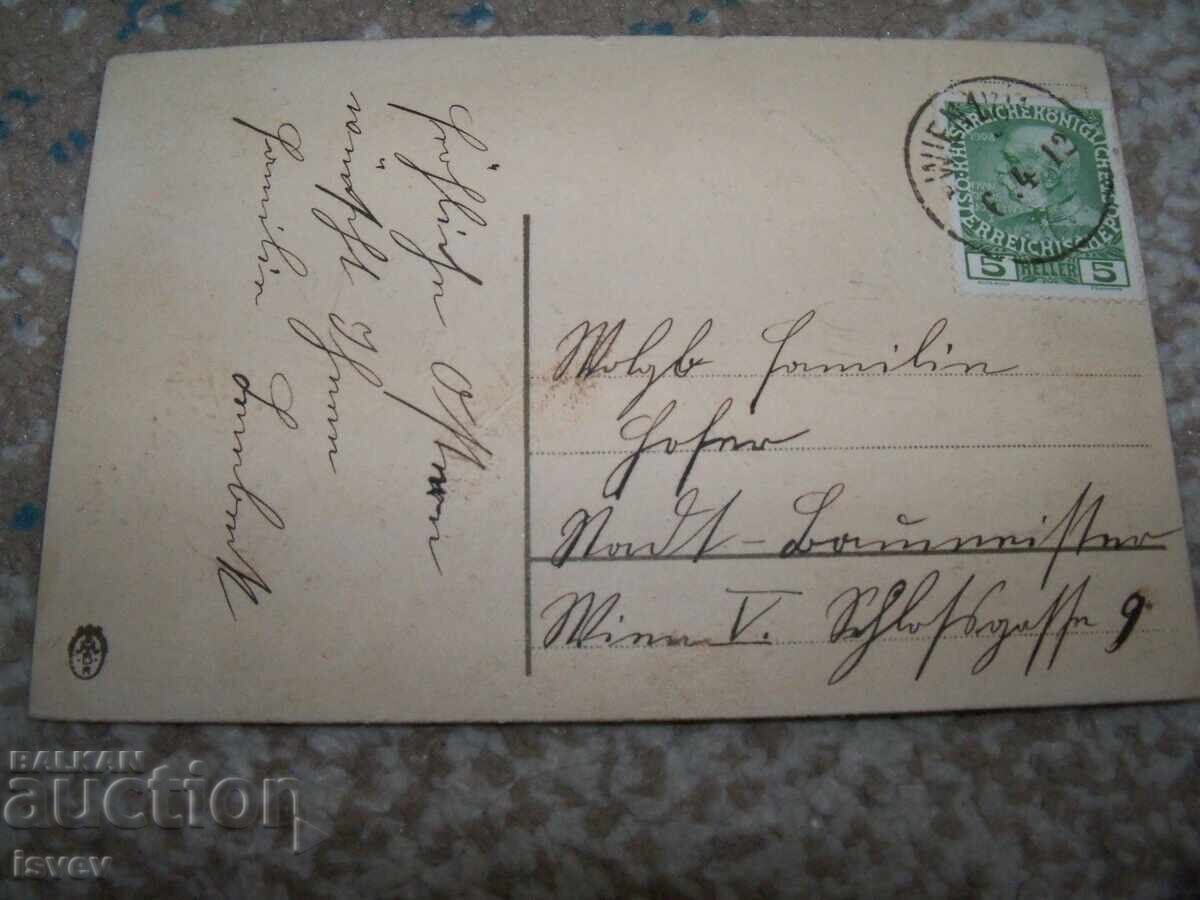 Fröhliche Ostern
wünscht Ihnen
Familie
WIEN
6. 4. 12
KAISERLICHE KÖNIGLICHE
ÖSTERREICHISCHE POST
1908
5 HELLER 5
Wolgb Familie
Hofer
Stadt-Baumeister
Wien V. Schloßgasse 9
BALKAN
auction
isvev